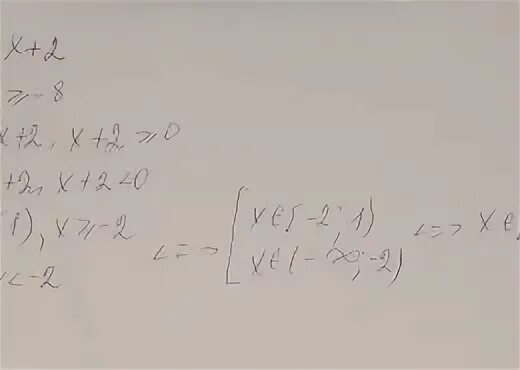 x+2
≥-8
x+2, x+2≥0
+2, x+2<0
1), x≥-2
x<-2
<=> [ x∈[-2; 1)
x∈(-∞; -2)
<=> x∈